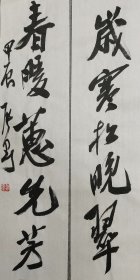 歲寒松晚翠
春暖蕙先芳
甲辰